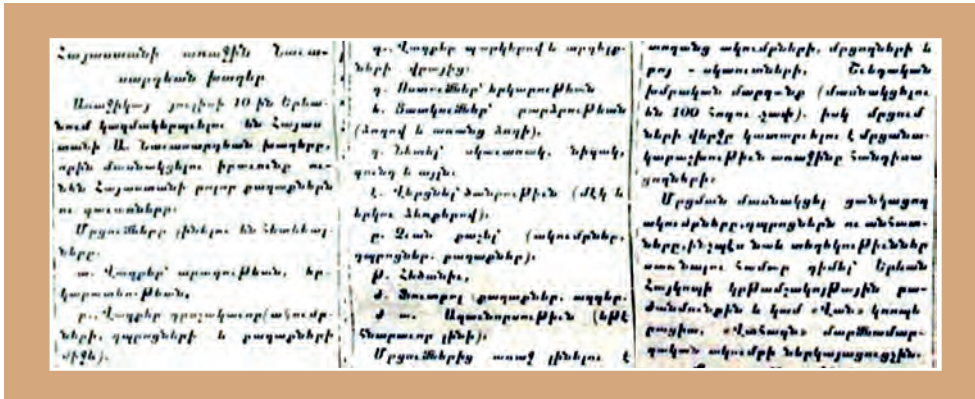 Հայաստանի առաջին Նաւա-
սարդեան խաղեր
Առաջիկայ յուլիսի 10 ին Երեւա-
նում կազմակերպելու են Հայաս
տանի Ա. Նաւասարդեան խաղերը,
որին մասնակցելու իրաւունք ու-
նեն Հայաստանի բոլոր քաղաքներն
ու գաւառները։
Մրցումները լինելու են հետեւեալ-
ները.
ա. Վազքեր՝ արագութեան, եր-
կարատեւութեան,
բ. Վազքեր դրօշակաւոր(ակումբ-
ների, դպրոցների և քաղաքների
միջև).
գ. Վազքեր պարկերով և արգելք-
ների վրայից.
դ. Ոստումներ՝ երկարութեան
ե. Ցատկումներ՝ բարձրութեան
(ձողով և առանց ձողի).
զ. Նետել՝ սկաւառակ, նիզակ,
գունդ և այլն.
է. Վերցնել՝ ծանրութիւն (մէկ և
երկու ձեռքերով).
ը. Չուան քաշել՝ (ակումբներ,
դպրոցներ, քաղաքներ).
թ. Հեծանիւ,
ժ. Ֆուտբոլ քաղաքներ, ազգեր.
ժ ա. Ազանորսութիւն (եթէ
հնարաւոր լինի).
Մրցումներից առաջ լինելու է
ակումբների, մրցողների և
բոյ - սկաուտների, Շուեդական
խմբական մարզանք (մասնակցելու
են 100 հոգու չափ). իսկ մրցում
ների վերջը կատարուելու է մրցանա-
կաբաշխութիւն առաջինը հանդիսա
ցողների։
Մրցման մասնակցել ցանկացող
ակումբները, դպրոցներն ու անհատ-
ները, ինչպէս նաև տեղեկութիւններ
ստանալու համար դիմել՝ Երեւան
Հայկոպի կրթամշակութային բա-
ժանմունքին և կամ «Վան» կոոպե
րացիա, «Վահան» մարմնամար-
զական ակումբի ներկայացուցչին.